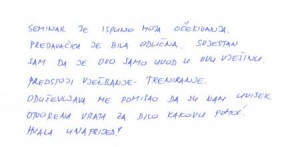 SEMINAR JE ISPUNIO MOJA OČEKIVANJA.
PREDAVAČKA JE BILA ODLIČNA. SVJESTAN
SAM DA JE OVO SAMO UVOD U OVU VJEŠTINU.
PREDSTOJI VJEŽBANJE - TRENIRANJE.
ODUŠEVLJAVA ME POMISAO DA SU NAM UVIJEK
OTVORENA VRATA ZA BILO KAKOVU POMOĆ.
HVALA UNAPRIJED!